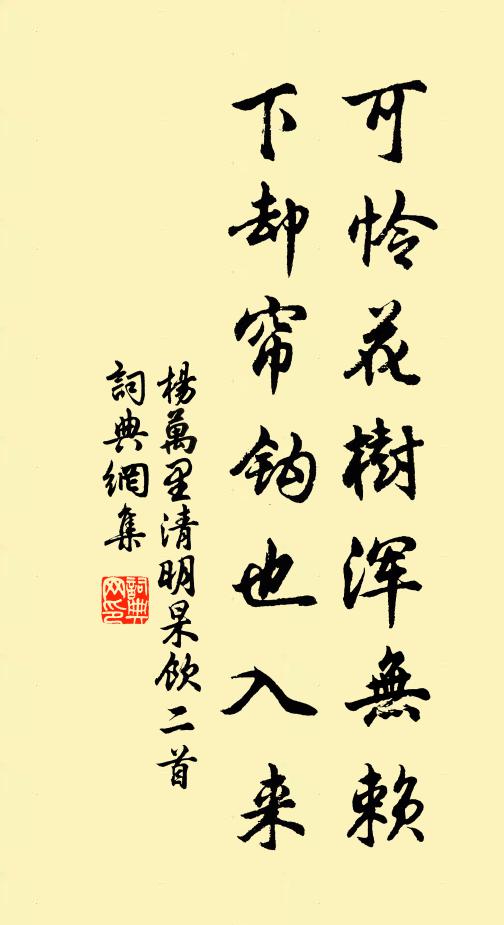 可怜花樹浑無赖
下却帘钩也入来
楊萬里清明杲飲二首
詞典網集
詞典网印